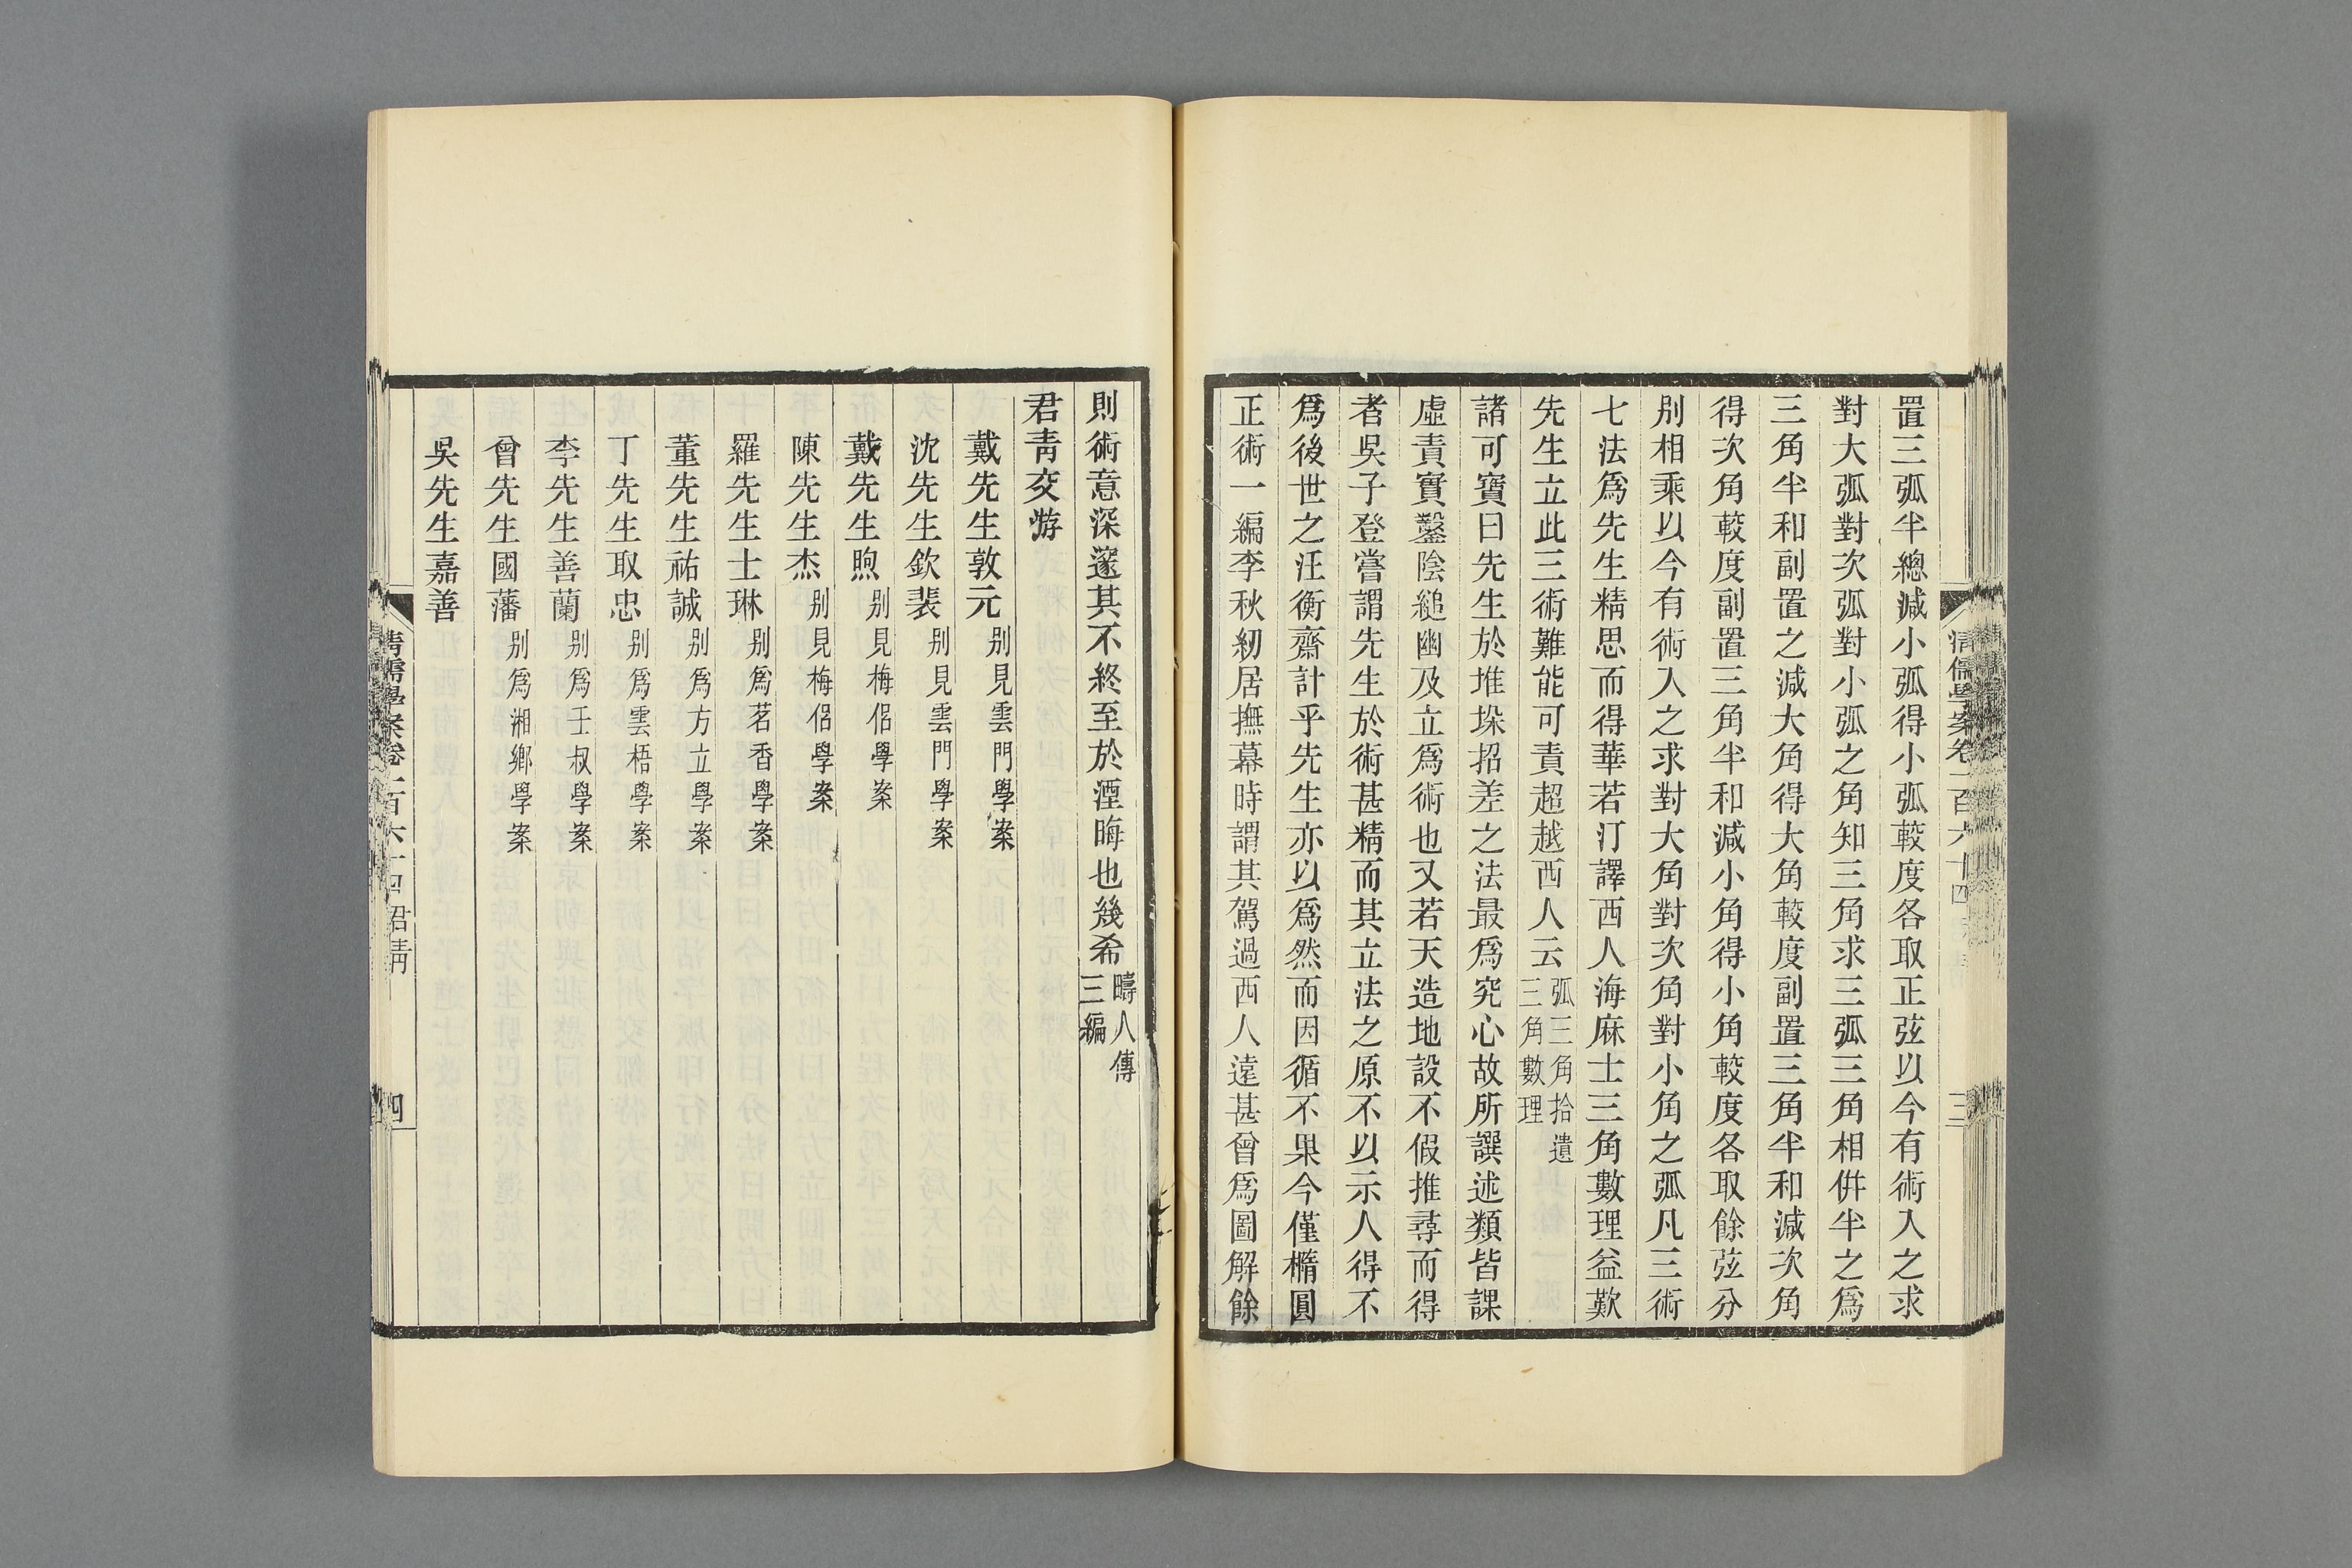 置三弧半總減小弧得小弧較度各取正弦以今有術入之求
對大弧對次弧對小弧之角知三角求三弧三角相併半之爲
三角半和副置之減大角得大角較度副置三角半和減次角
得次角較度副置三角半和減小角得小角較度各取餘弦分
別相乘以今有術入之求對大角對次角對小角之弧凡三術
七法爲先生精思而得華若汀譯西人海麻士三角數理益歎
先生立此三術難能可責超越西人云弧三角拾遺三角數理
諸可寶曰先生於堆垛招差之法最爲究心故所譔述類皆課
虛責實鑿陰縋幽及立爲術也又若天造地設不假推尋而得
者吳子登嘗謂先生於術甚精而其立法之原不以示人得不
爲後世之汪衡齋計乎先生亦以爲然而因循不果今僅橢圓
正術一編李秋紉居撫幕時謂其駕過西人遠甚曾爲圖解餘
清儒學案卷一百六十四
三
則術意深邃其不終至於湮晦也幾希疇人傳三編
君靑交游
戴先生敦元別見雲門學案
沈先生欽裴別見雲門學案
戴先生煦別見梅侶學案
陳先生杰別見梅侶學案
羅先生士琳別爲茗香學案
董先生祐誠別爲方立學案
丁先生取忠別爲雲梧學案
李先生善蘭別爲壬叔學案
曾先生國藩別爲湘鄉學案
吳先生嘉善
清儒學案卷一百六十四君靑
四